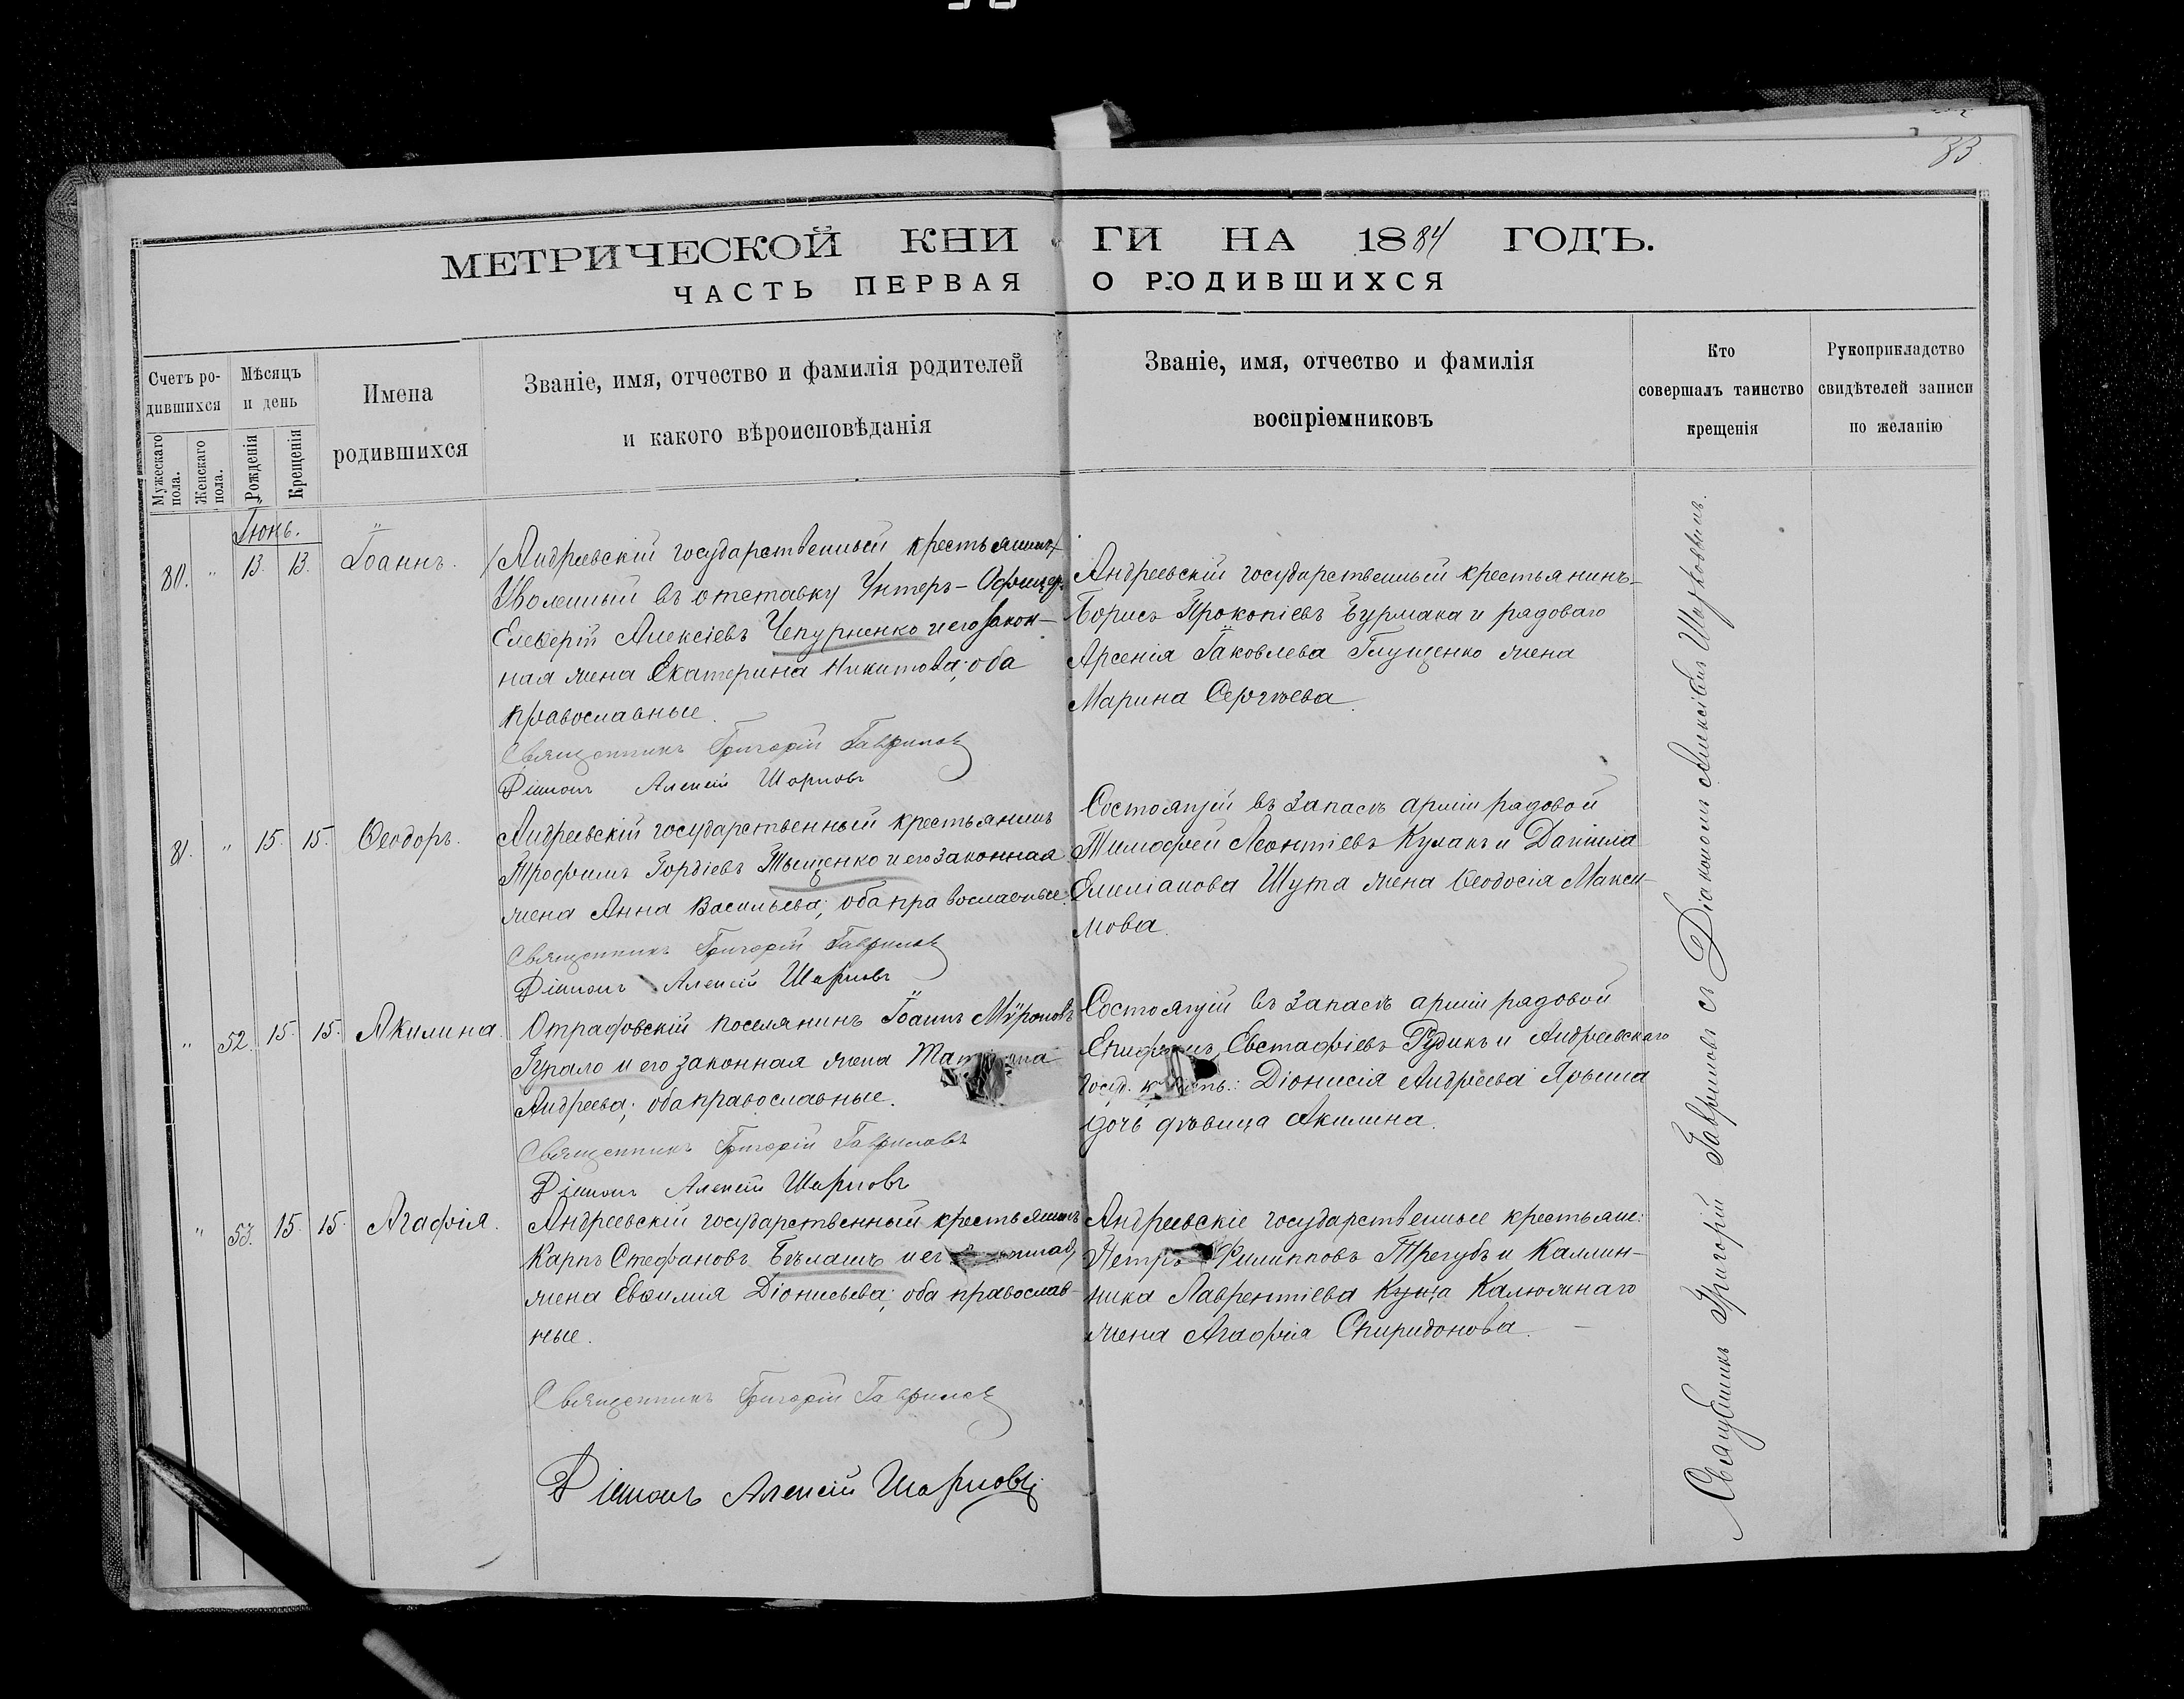 83.
МЕТРИЧЕСКОЙ КНИГИ НА 1884 ГОДЪ.
ЧАСТЬ ПЕРВАЯ О РОДИВШИХСЯ
Счетъ ро-
дившихся
Мужескаго
пола.
Женскаго
пола.
Мѣсяцъ
и день
Рожденія
Крещенія
Имена
родившихся
Званіе, имя, отчество и фамилія родителей
и какого вѣроисповѣданія
Званіе, имя, отчество и фамилія
воспріемниковъ
Кто
совершалъ таинство
крещенія
Рукоприкладство
свидѣтелей записи
по желанію
Іюнь.
80. " 13. 13. Іоаннъ.
Андреевскій государственный крестьянинъ
Уволенный въ отставку Унтеръ-Офицеръ
Елевѳерій Алексіевъ Чепурненко и его закон-
ная жена Екатерина Никитова; оба
православные.
Священникъ Григорій Гавриловъ
Діаконъ Алексій
Андреевскій государственный крестьянинъ
Борисъ Прокопіевъ Бурмака и рядоваго
Арсенія Іаковлева Глущенко жена
Марина Сергѣева.
81. " 15. 15. Ѳеодоръ.
Андреевскій государственный крестьянинъ
Трофимъ Гордіевъ Тыщенко и его законная
жена Анна Васильева; оба православные.
Священникъ Григорій Гавриловъ
Діаконъ Алексій
Состоящій въ запасѣ арміи рядовой
Тимофей Леонтіевъ Кулакъ и Даніила
Емиліанова Шута жена Ѳеодосія Макси-
мова.
" 52. 15. 15. Акилина.
Отрафовскій поселянинъ Іоаннъ Мѵроновъ
и его законная жена
Андреева; оба православные.
Священникъ Григорій Гавриловъ
Діаконъ Алексій
Состоящій въ запасѣ арміи рядовой
Евстафіевъ Рудикъ и Андреевскаго
Госуд. Діонисія Андреева Ярыша
дочь дѣвица Акилина.
" 53. 15. 15. Агафія.
Андреевскій государственный крестьянинъ
Карпъ Стефановъ Бѣлашъ и его
жена Евѳимія Діонисьева; оба православ-
ные.
Священникъ Григорій Гавриловъ
Діаконъ Алексій
Андреевскіе государственные крестьяне:
Петръ Филипповъ Трегубъ и Каллин-
ника Лаврентіева Калюжнаго
жена Агафія Спиридонова.
Священникъ Григорій Гавриловъ съ Діакономъ Алексіемъ